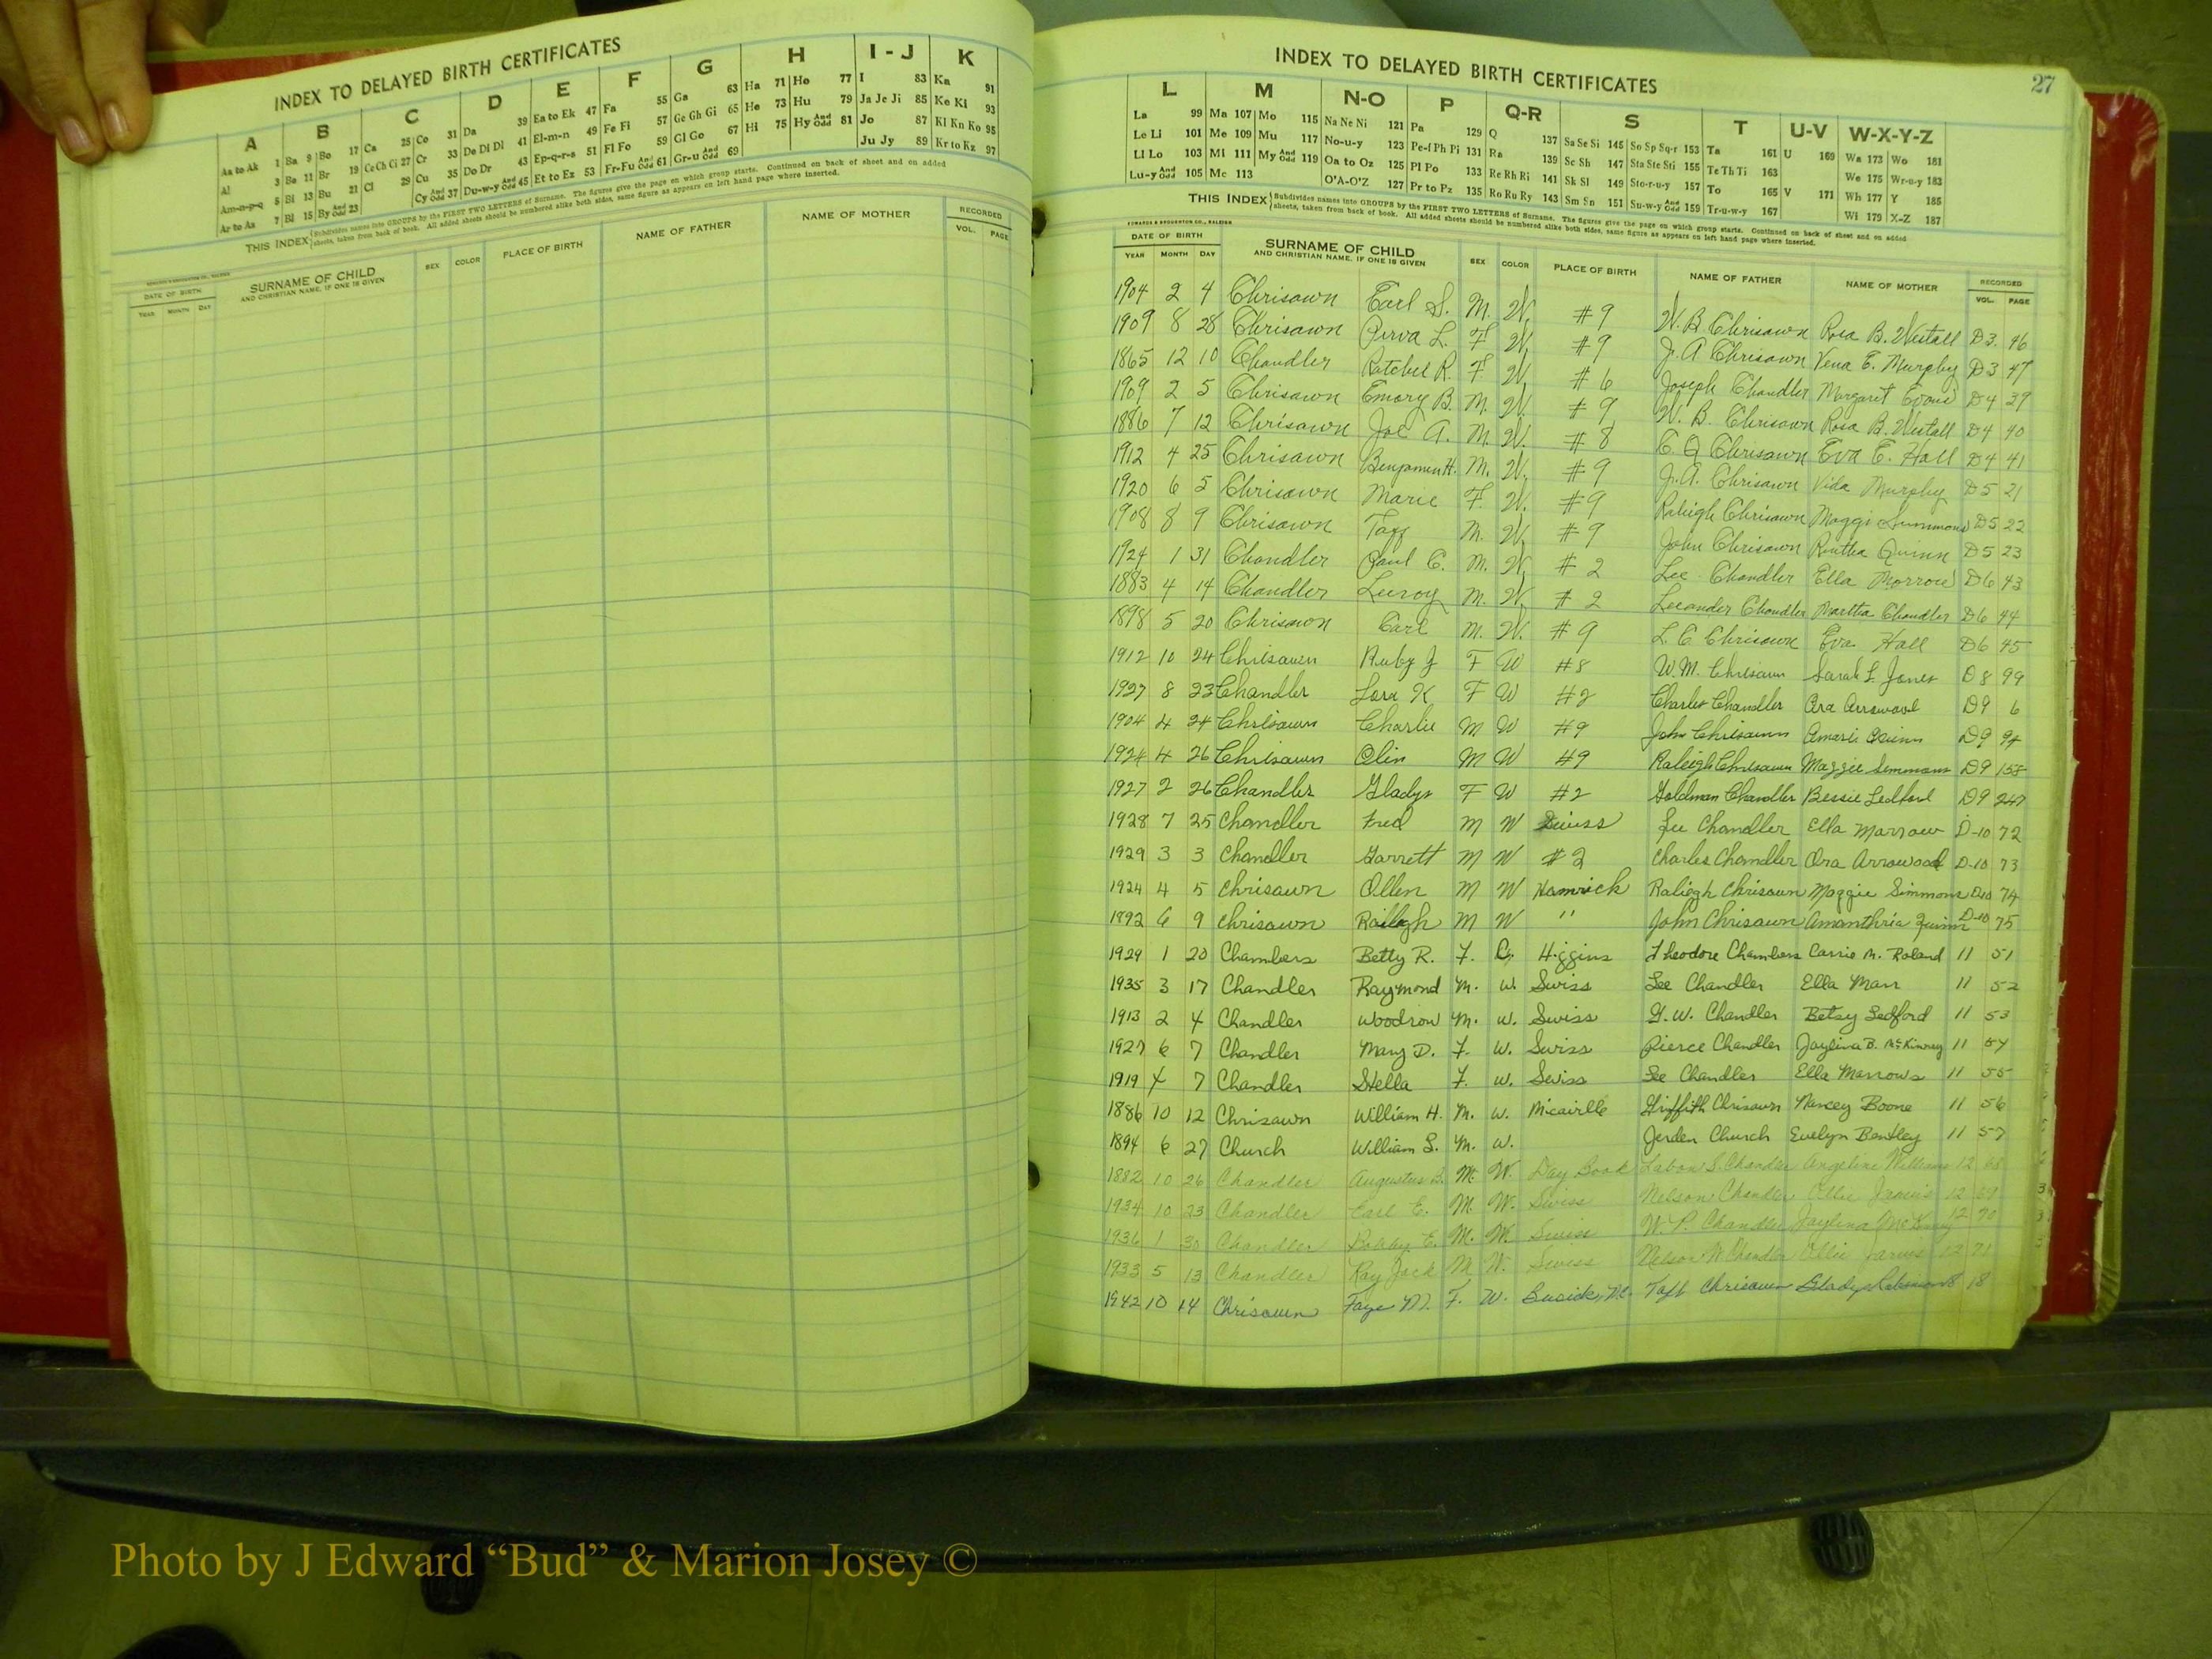 INDEX TO DELAYED BIRTH CERTIFICATES
A B C D E F G H I - J K
Aa to Ak 1 Ba 9 Bo 17 Ca 25 Co 31 Da 39 Ea to Ek 47 Fa 55 Ga 63 Ha 71 Ho 77 I 83 Ka 91
Al 3 Be 11 Br 19 Ce Ch Ci 27 Cr 33 De Di Dl 41 El-m-n 49 Fe Fi 57 Ge Gh Gi 65 He 73 Hu 79 Ja Je Ji 85 Ke Ki 93
Am-n-p-q 5 Bi 13 Bu 21 Cl 29 Cu 35 Do Dr 43 Ep-q-r-s 51 Fl Fo 59 Gl Go 67 Hi 75 Hy And Odd 81 Jo 87 Kl Kn Ko 95
Ar to Az 7 Bl 15 By And Odd 23 Cy And Odd 37 Du-w-y And Odd 45 Et to Ez 53 Fr-Fu And Odd 61 Gr-u And Odd 69 Ju Jy 89 Kr to Kz 97
THIS INDEX Subdivides names into GROUPS by the FIRST TWO LETTERS of Surname. The figures give the page on which group starts. Continued on back of sheet and on added
sheets, taken from back of book. All added sheets should be numbered alike both sides, same figure as appears on left hand page where inserted.
DATE OF BIRTH SURNAME OF CHILD SEX COLOR PLACE OF BIRTH NAME OF FATHER NAME OF MOTHER RECORDED
YEAR MONTH DAY AND CHRISTIAN NAME, IF ONE IS GIVEN VOL. PAGE
27
INDEX TO DELAYED BIRTH CERTIFICATES
L M N-O P Q-R S T U-V W-X-Y-Z
La 99 Ma 107 Mo 115 Na Ne Ni 121 Pa 129 Q 137 Sa Se Si 145 So Sp Sq-r 153 Ta 161 U 169 Wa 173 Wo 181
Le Li 101 Me 109 Mu 117 No-u-y 123 Pe-f Ph Pi 131 Ra 139 Sc Sh 147 Sta Ste Sti 155 Te Th Ti 163 We 175 Wr-u-y 183
Ll Lo 103 Mi 111 My And Odd 119 Oa to Oz 125 Pl Po 133 Re Rh Ri 141 Sk Sl 149 Sto-r-u-y 157 To 165 V 171 Wh 177 Y 185
Lu-y And Odd 105 Mc 113 O'A-O'Z 127 Pr to Pz 135 Ro Ru Ry 143 Sm Sn 151 Su-w-y And Odd 159 Tr-u-w-y 167 Wi 179 X-Z 187
THIS INDEX Subdivides names into GROUPS by the FIRST TWO LETTERS of Surname. The figures give the page on which group starts. Continued on back of sheet and on added
sheets, taken from back of book. All added sheets should be numbered alike both sides, same figure as appears on left hand page where inserted.
EDWARDS & BROUGHTON CO., RALEIGH
DATE OF BIRTH SURNAME OF CHILD SEX COLOR PLACE OF BIRTH NAME OF FATHER NAME OF MOTHER RECORDED
YEAR MONTH DAY AND CHRISTIAN NAME, IF ONE IS GIVEN VOL. PAGE
1904 2 4 Chrisawn Earl S. M. W. #9 W. B. Chrisawn Rosa B. Westall D3 46
1909 8 28 Chrisawn Perva L. F W. #9 J. A Chrisawn Vena E. Murphy D3 47
1865 12 10 Chandler Ratchel R. F W. #6 Joseph Chandler Margaret Evans D4 39
1909 2 5 Chrisawn Emory B. M. W. #9 W. B. Chrisawn Rosa B. Westall D4 40
1886 7 12 Chrisawn Joe A. M. W. #8 C. Chrisawn Eva E. Hall D4 41
1912 4 25 Chrisawn Benjamin H. M. W. #9 J. A. Chrisawn Vida Murphy D5 21
1920 6 5 Chrisawn Marie F. W. #9 Raleigh Chrisawn Maggi Summons D5 22
1908 8 9 Chrisawn Taff M. W. #9 John Chrisawn Quinn D5 23
1924 1 31 Chandler Paul C. M. W. #2 Lee Chandler Ella Morrow D6 43
1883 4 14 Chandler Leeroy M. W. #2 Leeander Chandler Martha Chandler D6 44
1898 5 20 Chrisawn Carl M. W. #9 L. C. Chrisawn Eva Hall D6 45
1912 10 24 Chrisawn Ruby J F W #8 W. M. Chrisawn Sarah L. Jones D8 99
1927 8 23 Chandler Lora K F W #2 Charles Chandler Ora Arrowood D9 6
1904 4 24 Chrisawn Charlie M W #9 John Chrisawn Amarie Quinn D9 94
1924 4 26 Chrisawn Olin M W #9 Raleigh Chrisawn Maggie Simmons D9 158
1927 2 26 Chandler Gladys F W #2 Goldman Chandler Bessie Ledford D9 247
1928 7 25 Chandler Fred M W Swiss Lee Chandler Ella Marrow D-10 72
1929 3 3 Chandler Garrett M W #2 Charles Chandler Ora Arrowood D-10 73
1924 4 5 Chrisawn Ollen M W Hamrick Raliegh Chrisawn Maggie Simmons D-10 74
1892 6 9 Chrisawn Raliegh M W " John Chrisawn Amanthria Quinn D-10 75
1929 1 20 Chambers Betty R. F. C. Higgins Theodore Chambers Carrie M. Roland 11 51
1935 3 17 Chandler Raymond M. W. Swiss Lee Chandler Ella Marr 11 52
1913 2 4 Chandler Woodrow M. W. Swiss G. W. Chandler Betsy Ledford 11 53
1927 6 7 Chandler Mary D. F. W. Swiss Pierce Chandler Jaylina B. McKinney 11 54
1919 4 7 Chandler Stella F. W. Swiss Lee Chandler Ella Marrows 11 55
1886 10 12 Chrisawn William H. M. W. Micaville Griffith Chrisawn Nancey Boone 11 56
1894 6 27 Church William S. M. W. Jerden Church Evelyn Bentley 11 57
1882 10 26 Chandler Augustus B. M. W. Day Book Labon S. Chandler Angeline Williams 12 68
1934 10 23 Chandler Earl E. M. W. Swiss Nelson Chandler Ollie Jarvis 12 69
1936 1 30 Chandler Bobby E. M. W. Swiss W. P. Chandler Jaylina McKinney 12 70
1933 5 13 Chandler Ray Jack M W. Swiss Nelson W Chandler Ollie Jarvis 12 71
1942 10 14 Chrisawn Faye M. F. W. Busick, N.C. Taft Chrisawn Gladys 18
Photo by J Edward “Bud” & Marion Josey ©